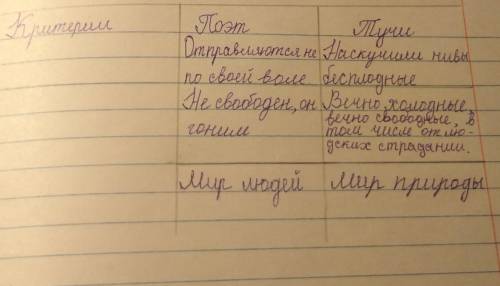 Критерии Поэт Тучи
Отправляются не Наскучили нивы
по своей воле бесплодные
Не свободен, он Вечно холодные,
гоним вечно свободные, в
том числе от лю-
дских страдании.
Мир людей Мир природы